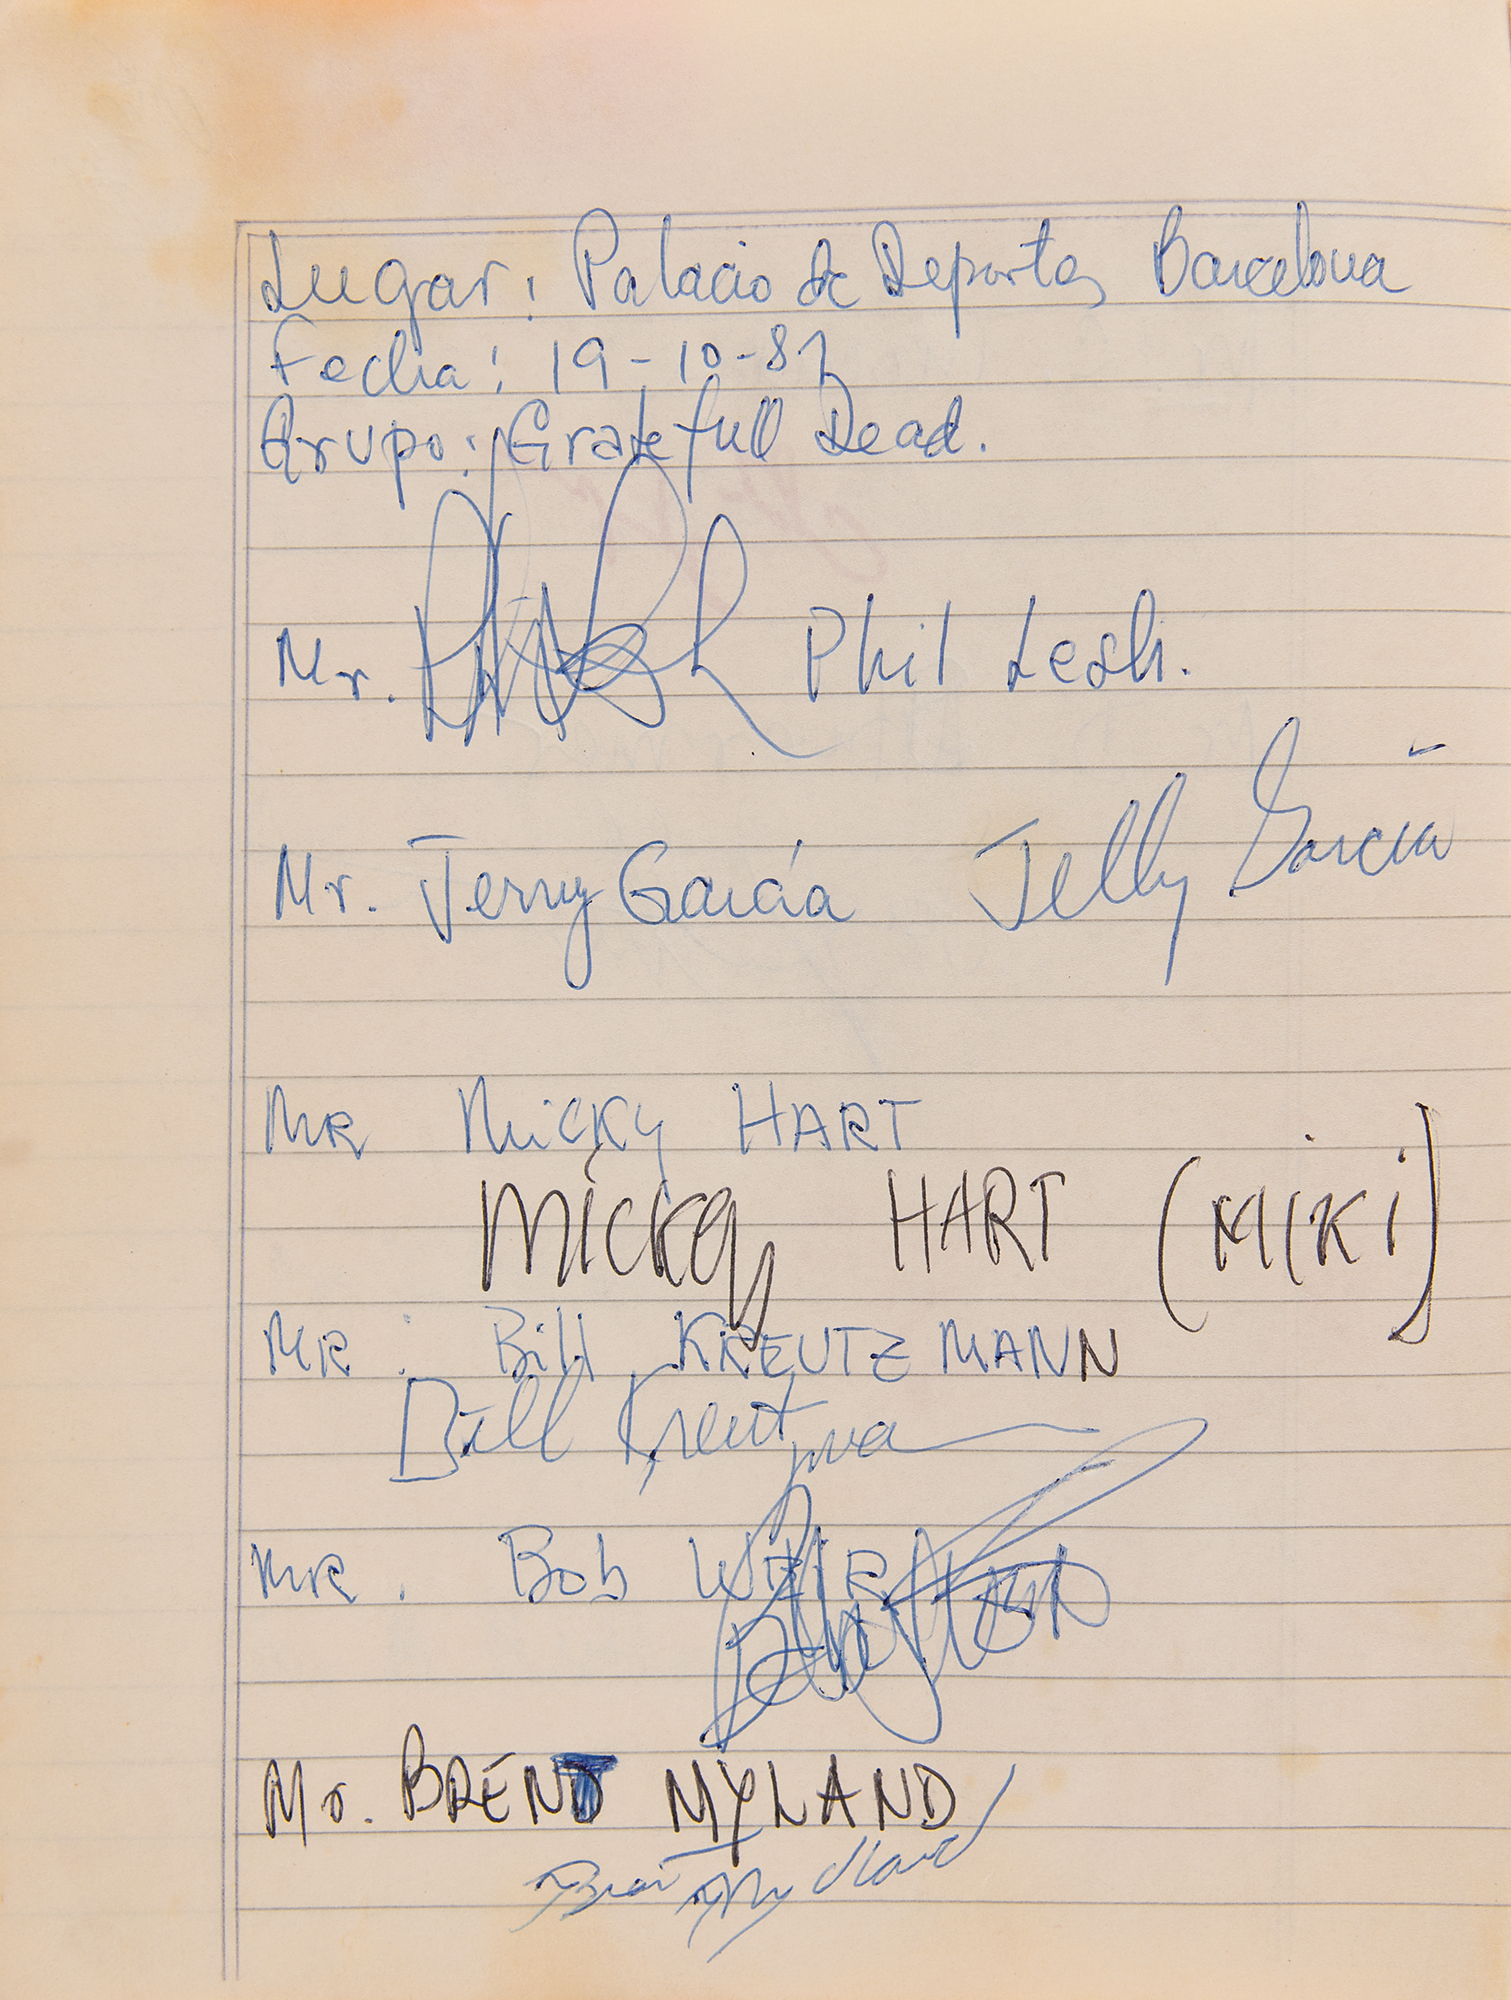 Lugar: Palacio de Deportes Barcelona
Fecha: 19-10-81
Grupo: Gratefull Dead.
Mr. Phil Lesh.
Mr. Jerry García Jelly Garcia
MR Micky HART
Micky HART (MIKi)
MR: Bill KREUTZMANN
Bill Kreutzmann
MR. Bob WEIR
Mr. BRENT MYLAND
Brent Mydland